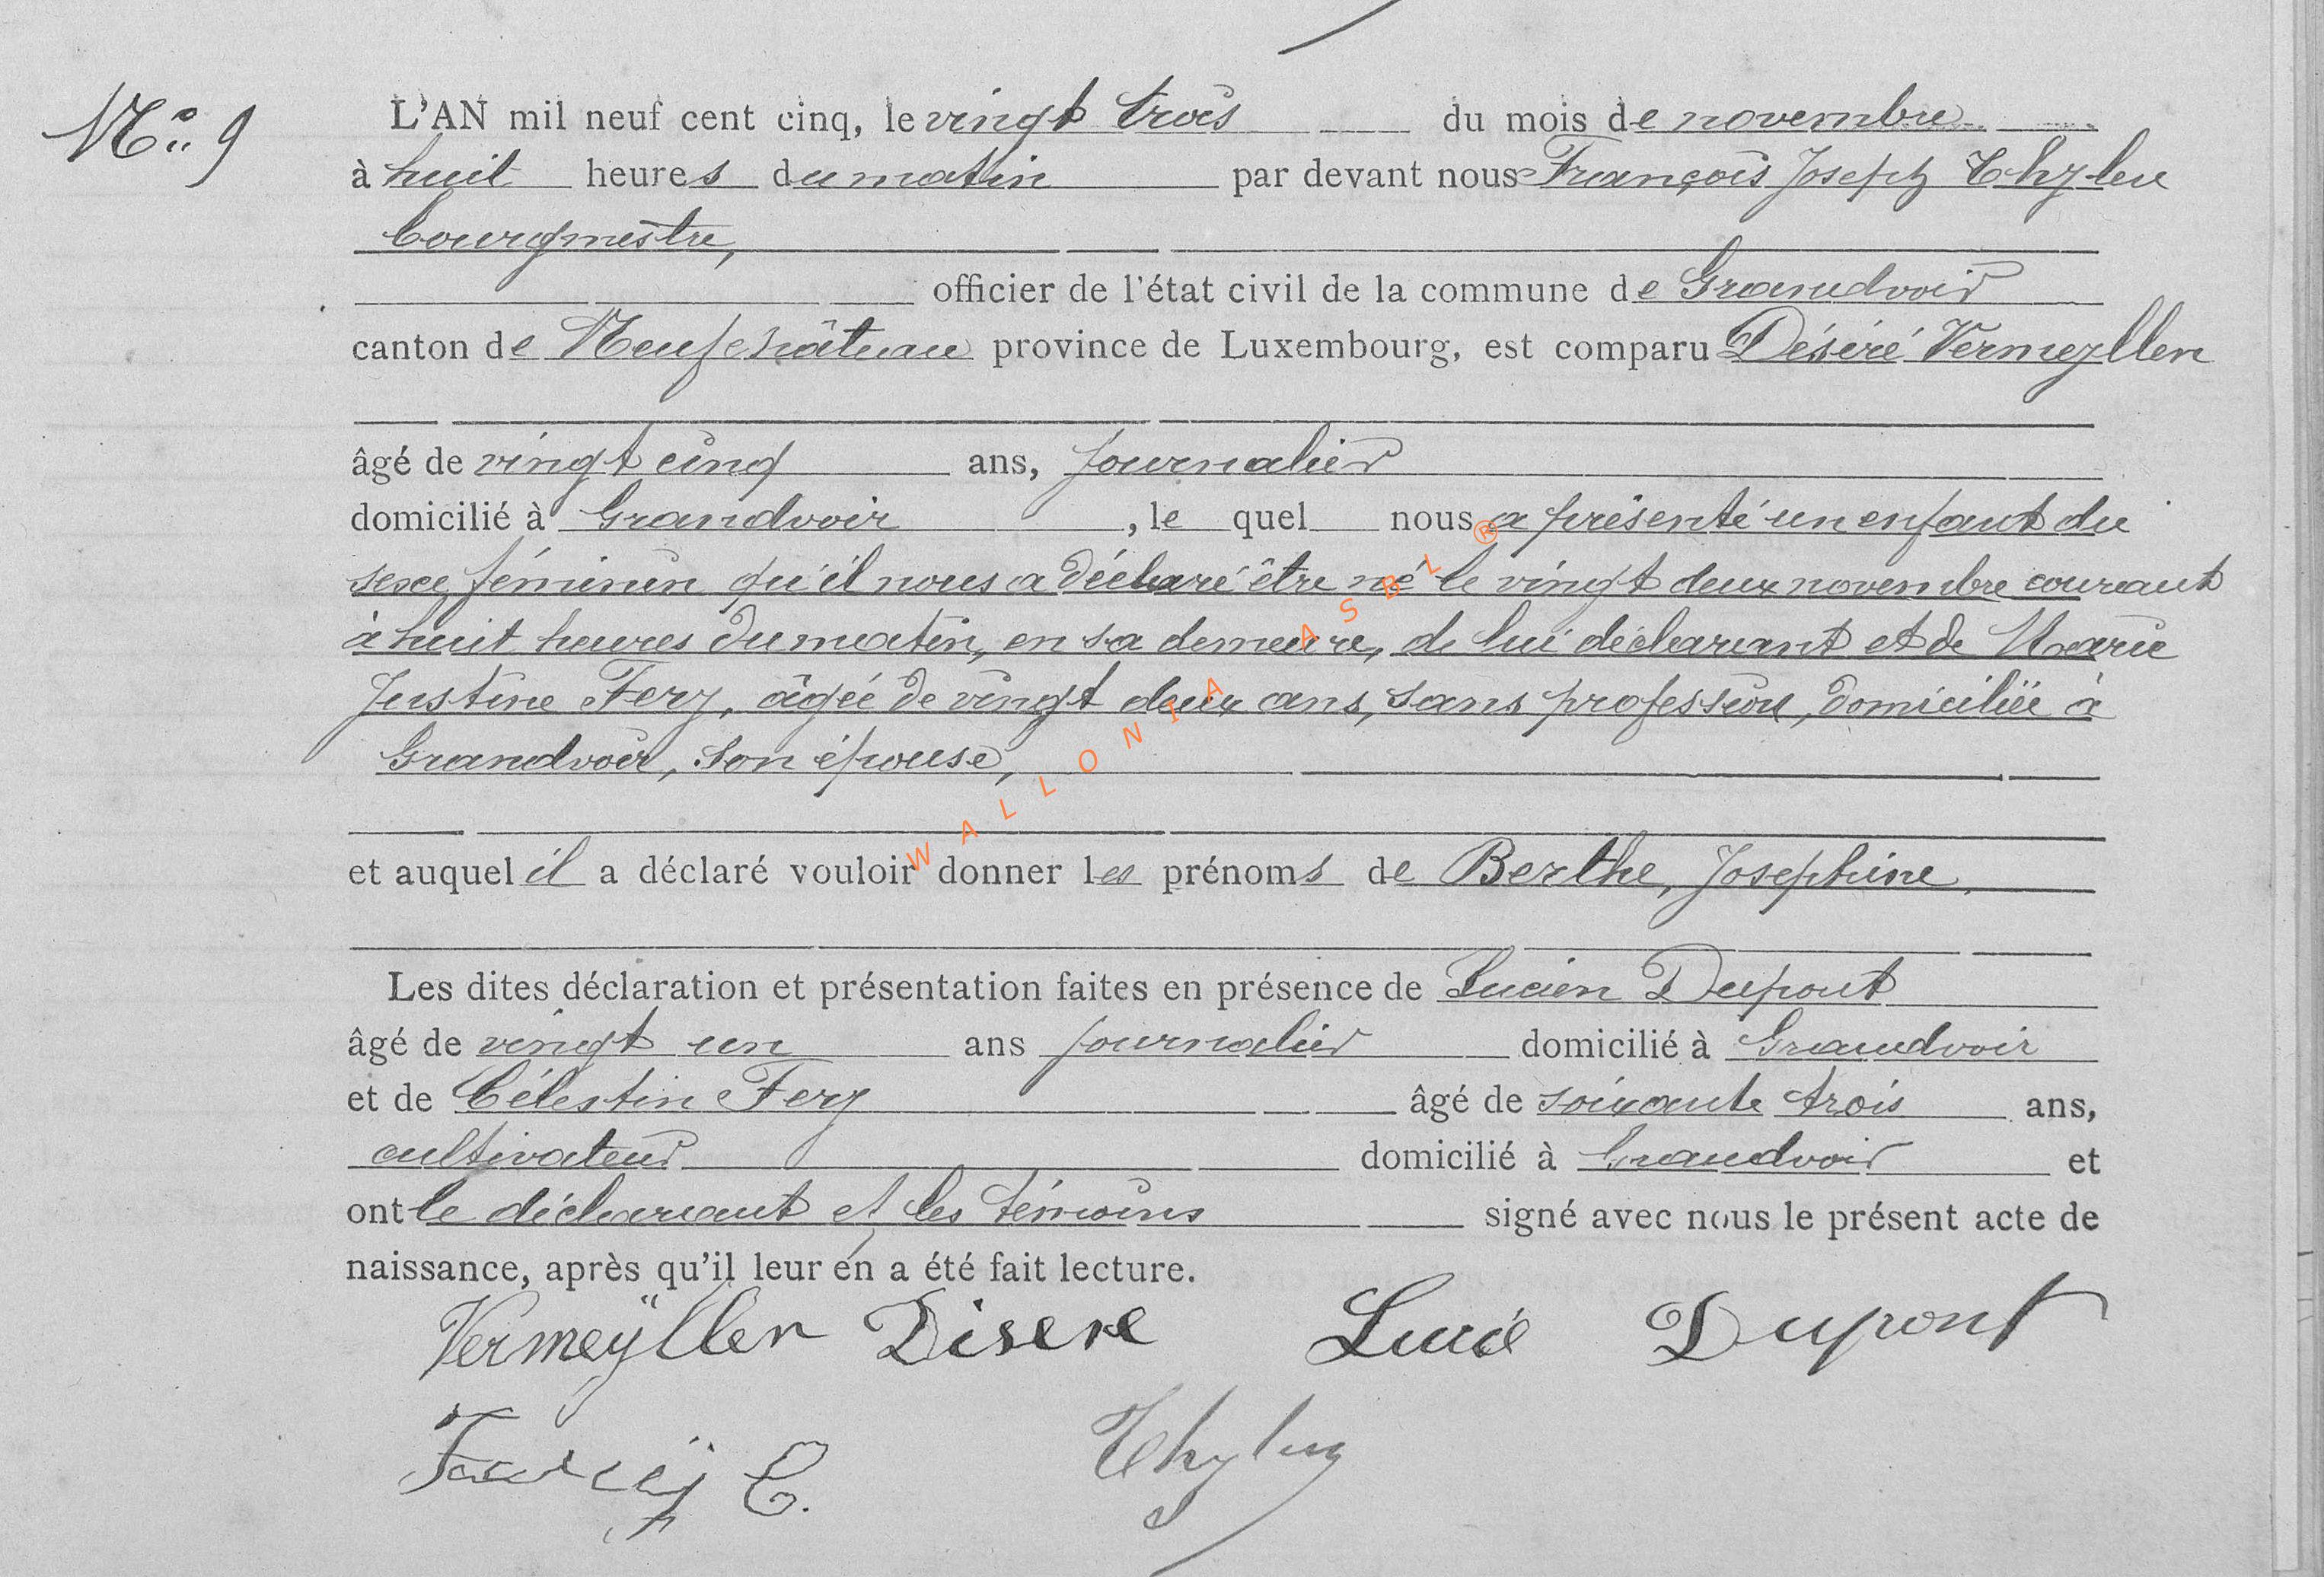 No 9
L'AN mil neuf cent cinq, le vingt trois du mois de novembre
à huit heures du matin par devant nous François Joseph Thylen
bourgmestre,
officier de l'état civil de la commune de Grandvoir
canton de Neufchâteau province de Luxembourg, est comparu Désiré Vermeyllen
âgé de vingt cinq ans, journalier
domicilié à Grandvoir, le quel nous a présenté un enfant du
sexe féminin qu'il nous a déclaré être né le vingt deux novembre courant
à huit heures du matin, en sa demeure, de lui déclarant et de Marie
Justine Fery, âgée de vingt deux ans, sans profession, domiciliée à
Grandvoir, son épouse,
et auquel il a déclaré vouloir donner les prénoms de Berthe, Josephine.
Les dites déclaration et présentation faites en présence de Lucien Dupont
âgé de vingt un ans journalier domicilié à Grandvoir
et de Célestin Fery âgé de soixante trois ans,
cultivateur domicilié à Grandvoir et
ont le déclarant et les témoins signé avec nous le présent acte de
naissance, après qu'il leur en a été fait lecture.
Vermeÿllen Disere Dupont
C. Thylen
WALLONIA ASBL ®